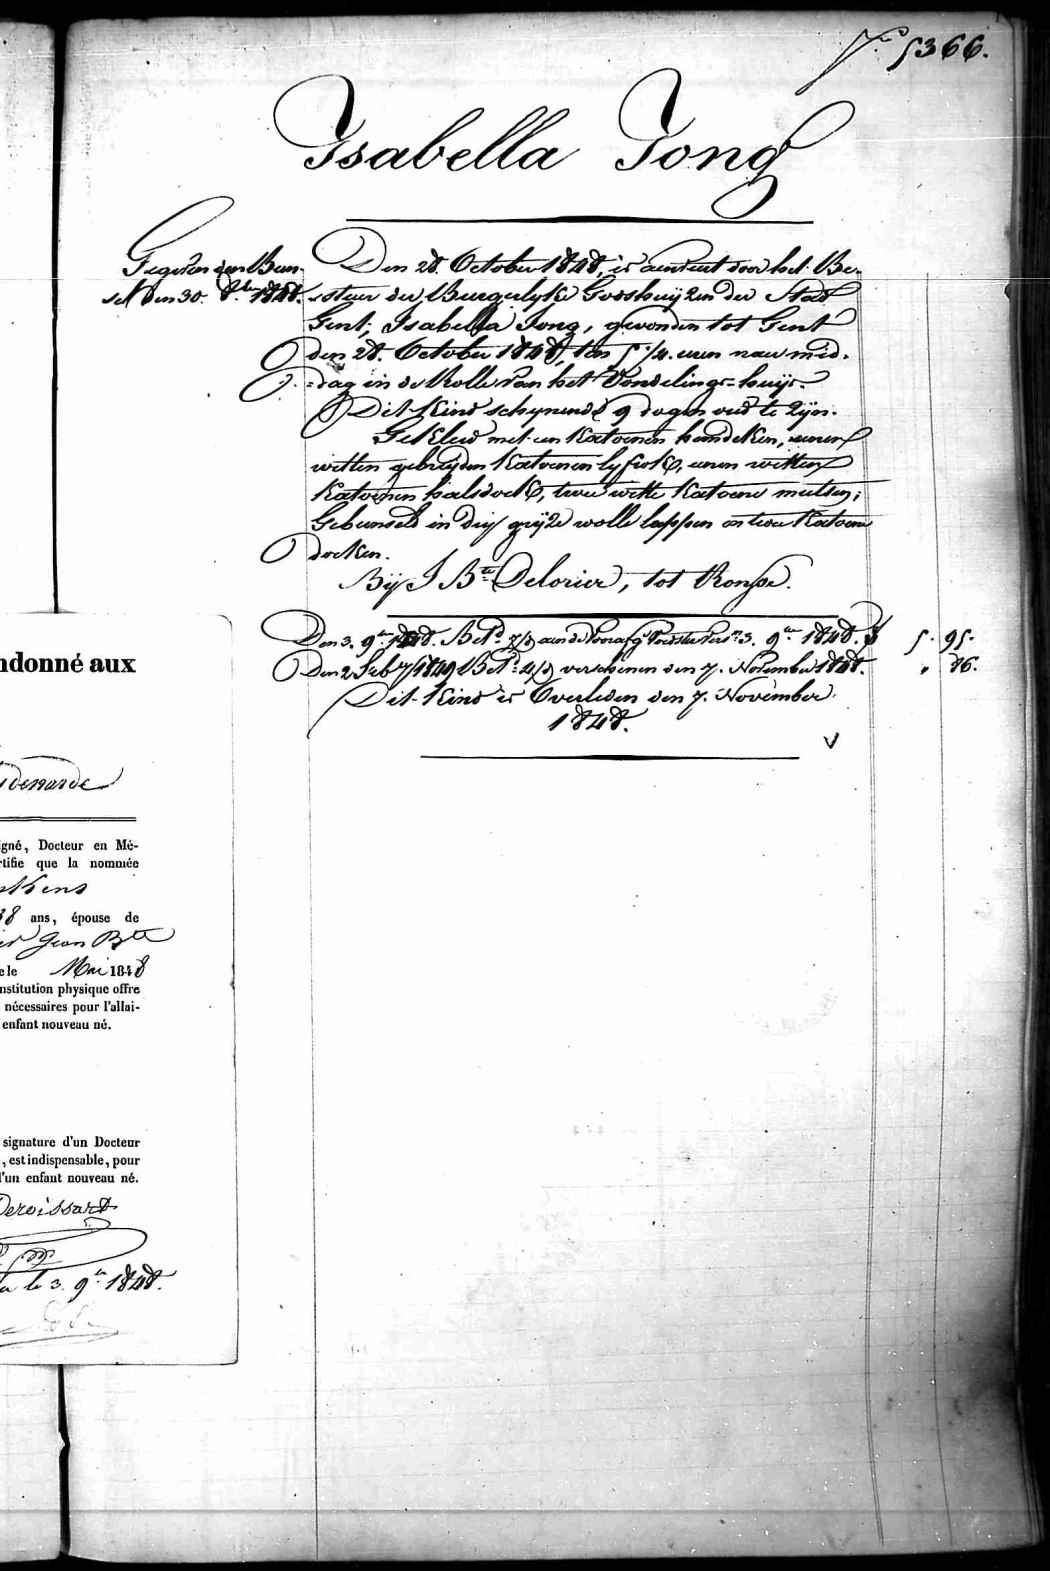 N.º 5366.
Isabella Jong
Gegeven een Bun-
sel den 30. 8.ber 1848.
Den 28. October 1848, is aenveert door het Be-
-stuer der Burgerlyke Godshuijzen der Stad
Gent; Isabella Jong, gevonden tot Gent
den 28. October 1848, ten 5 1/4. uren naer mid-
-dag in de Rolle van het Vondelings-huijs.
Dit Kind schynende 9 dagen oud te zijn.
Gekleed met een Katoenen hemdeken, eenen
witten gebreijden Katoenen lyfrok, eenen witten
Katoenen halsdoek, twee witte Katoene mutsen;
Gebunseld in dry gryze wolle lappen en twee Katoene
doeken.
Bij J. B.te Delorier, tot Ronse.
Den 3. 9.ber 1848. Bet.d aen de Voedster 3. 9.ber 1848. 5. 95.
Den 2 Feb.y 1849 Bet.d verschenen den 7. November 1848. " 86.
Dit Kind is Overleden den 7. November
1848.
ndonné aux
denarde
igné, Docteur en Mé-
rtifie que la nommée
kens
38 ans, épouse de
er Jean Bte
e le Mai 1848
nstitution physique offre
nécessaires pour l'allai-
enfant nouveau né.
signature d'un Docteur
, est indispensable, pour
l'un enfant nouveau né.
Deroissart
le 3. 9.ber 1848.